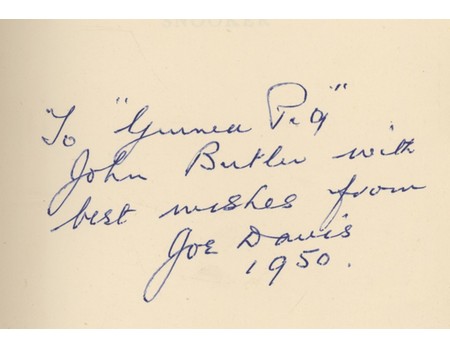 SNOOKER
To "Guinea Pig"
John Butler with
best wishes from
Joe Davis
1950.